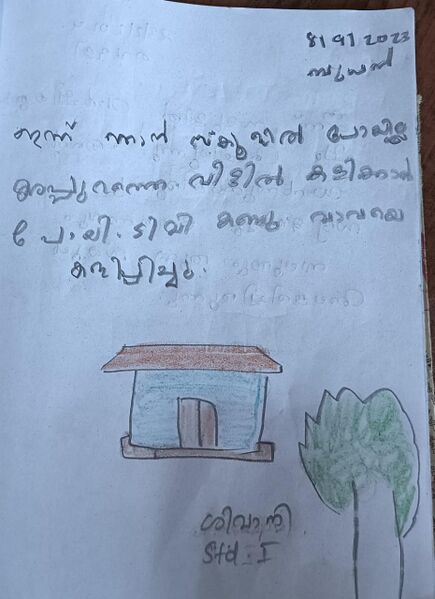 8/9/2023
ബുധൻ
ഇന്ന് ഞാൻ സ്കൂളിൽ പോയില്ല
അപ്പുറത്തെ വീട്ടിൽ കളിക്കാൻ
പോയി. ടിവി കണ്ടു വാവയെ
കളിപ്പിച്ചു.
ശിവാനി
Std I